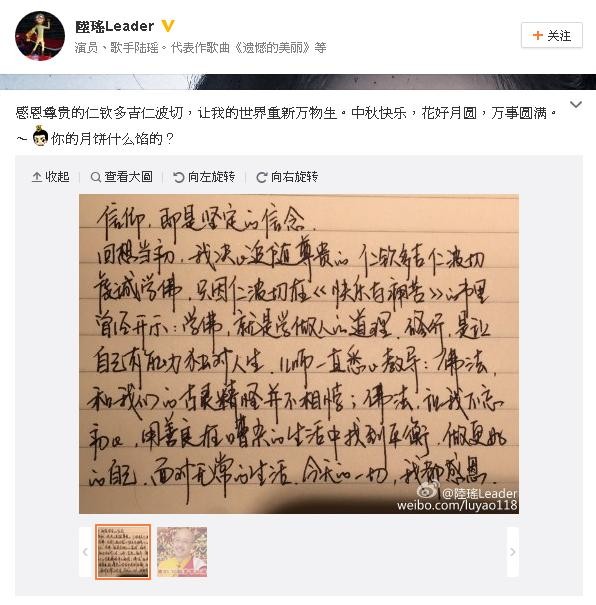 陸瑤Leader
演员、歌手陆瑶。代表作歌曲《遗憾的美丽》等
+ 关注
感恩尊贵的仁钦多吉仁波切，让我的世界重新万物生。中秋快乐，花好月圆，万事圆满。
～你的月饼什么馅的？
收起 查看大圖 向左旋转 向右旋转
信仰，即是坚定的信念。
回想当初，我决心追随尊贵的 仁钦多吉仁波切
虔诚学佛，只因仁波切在《快乐与痛苦》的书里
曾经开示：学佛，就是学做人的道理，修行，是让
自己有能力独对人生，上师一直悉心教导：佛法，
和我们的古灵精怪并不相悖；佛法，让我不忘
初心，用善良在嘈杂的生活中找到平衡，做更好
的自己，面对无常的生活。今天的一切，我都感恩。
@陸瑤Leader
weibo.com/luyao118